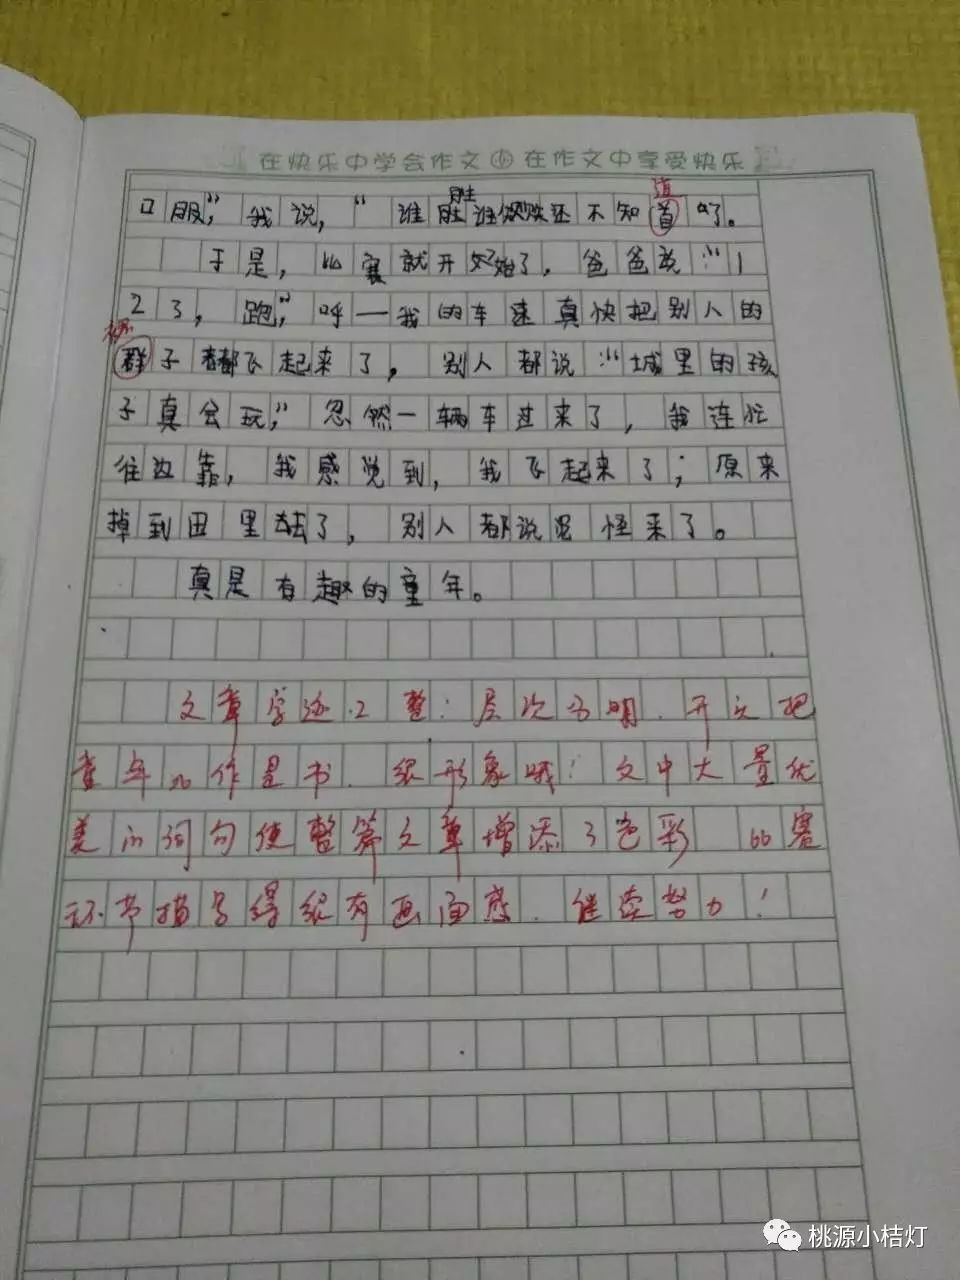 在快乐中学会作文 在作文中享受快乐
胜 道
口服,”我说,“谁胜谁还不知首了。
于是,比赛就开始了,爸爸说:“1
23,跑,”呼一我的车速真快把别人的
裙
群子都飞起来了,别人都说:“城里的孩
子真会玩,”忽然一辆车过来了,我连忙
往边靠,我感觉到,我飞起来了;原来
掉到田里去了,别人都说 怪来了。
真是有趣的童年。
文章字迹工整:层次分明.开头把
童年比作是书.很形象哦!文中大量优
美的词句使整篇文章增添了色彩 比赛
环节描写得很有画面感.继续努力!
桃源小桔灯